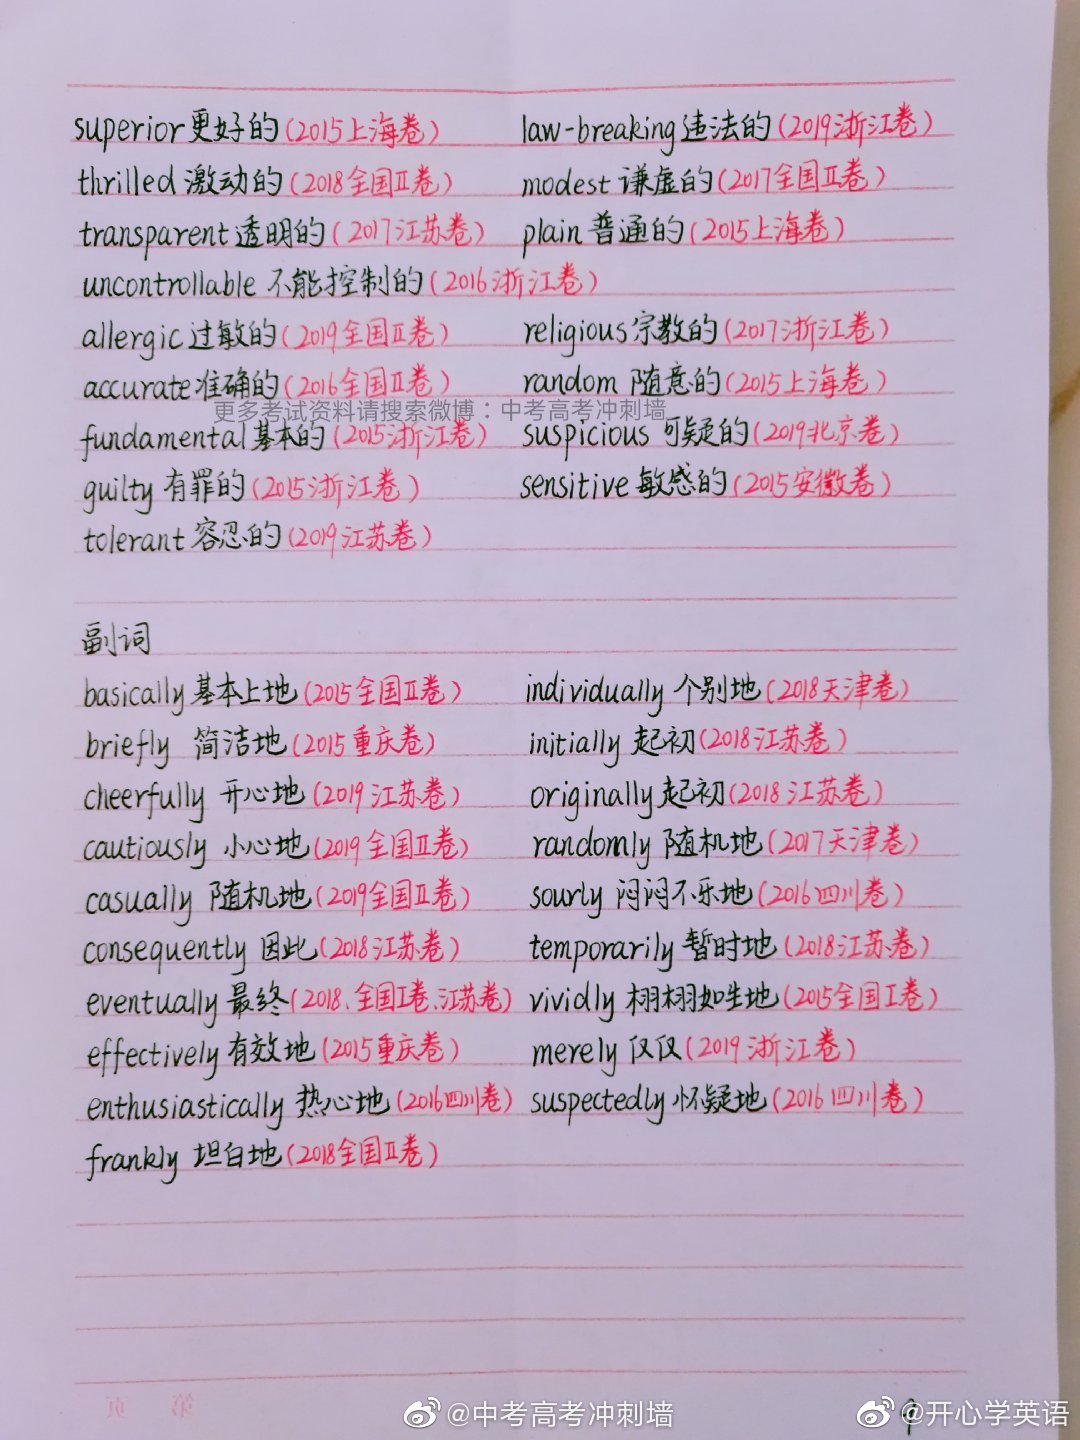 superior 更好的(2015上海卷) law-breaking 违法的(2019浙江卷)
thrilled 激动的(2018全国II卷) modest 谦虚的(2017全国II卷)
transparent 透明的(2017江苏卷) plain 普通的(2015上海卷)
uncontrollable 不能控制的(2016浙江卷)
allergic 过敏的(2019全国II卷) religious 宗教的(2017浙江卷)
accurate 准确的(2016全国II卷) random 随意的(2015上海卷)
更多考试资料请搜索微博：中考高考冲刺墙
fundamental 基本的(2015浙江卷) suspicious 可疑的(2019北京卷)
guilty 有罪的(2015浙江卷) sensitive 敏感的(2015安徽卷)
tolerant 容忍的(2019江苏卷)
副词
basically 基本上地(2015全国II卷) individually 个别地(2018天津卷)
briefly 简洁地(2015重庆卷) initially 起初(2018江苏卷)
cheerfully 开心地(2019江苏卷) originally 起初(2018江苏卷)
cautiously 小心地(2019全国II卷) randomly 随机地(2017天津卷)
casually 随机地(2019全国II卷) sourly 闷闷不乐地(2016四川卷)
consequently 因此(2018江苏卷) temporarily 暂时地(2018江苏卷)
eventually 最终(2018、全国I卷、江苏卷) vividly 栩栩如生地(2015全国I卷)
effectively 有效地(2015重庆卷) merely 仅仅(2019浙江卷)
enthusiastically 热心地(2016四川卷) suspectedly 怀疑地(2016四川卷)
frankly 坦白地(2018全国II卷)
第 页
@中考高考冲刺墙 @开心学英语